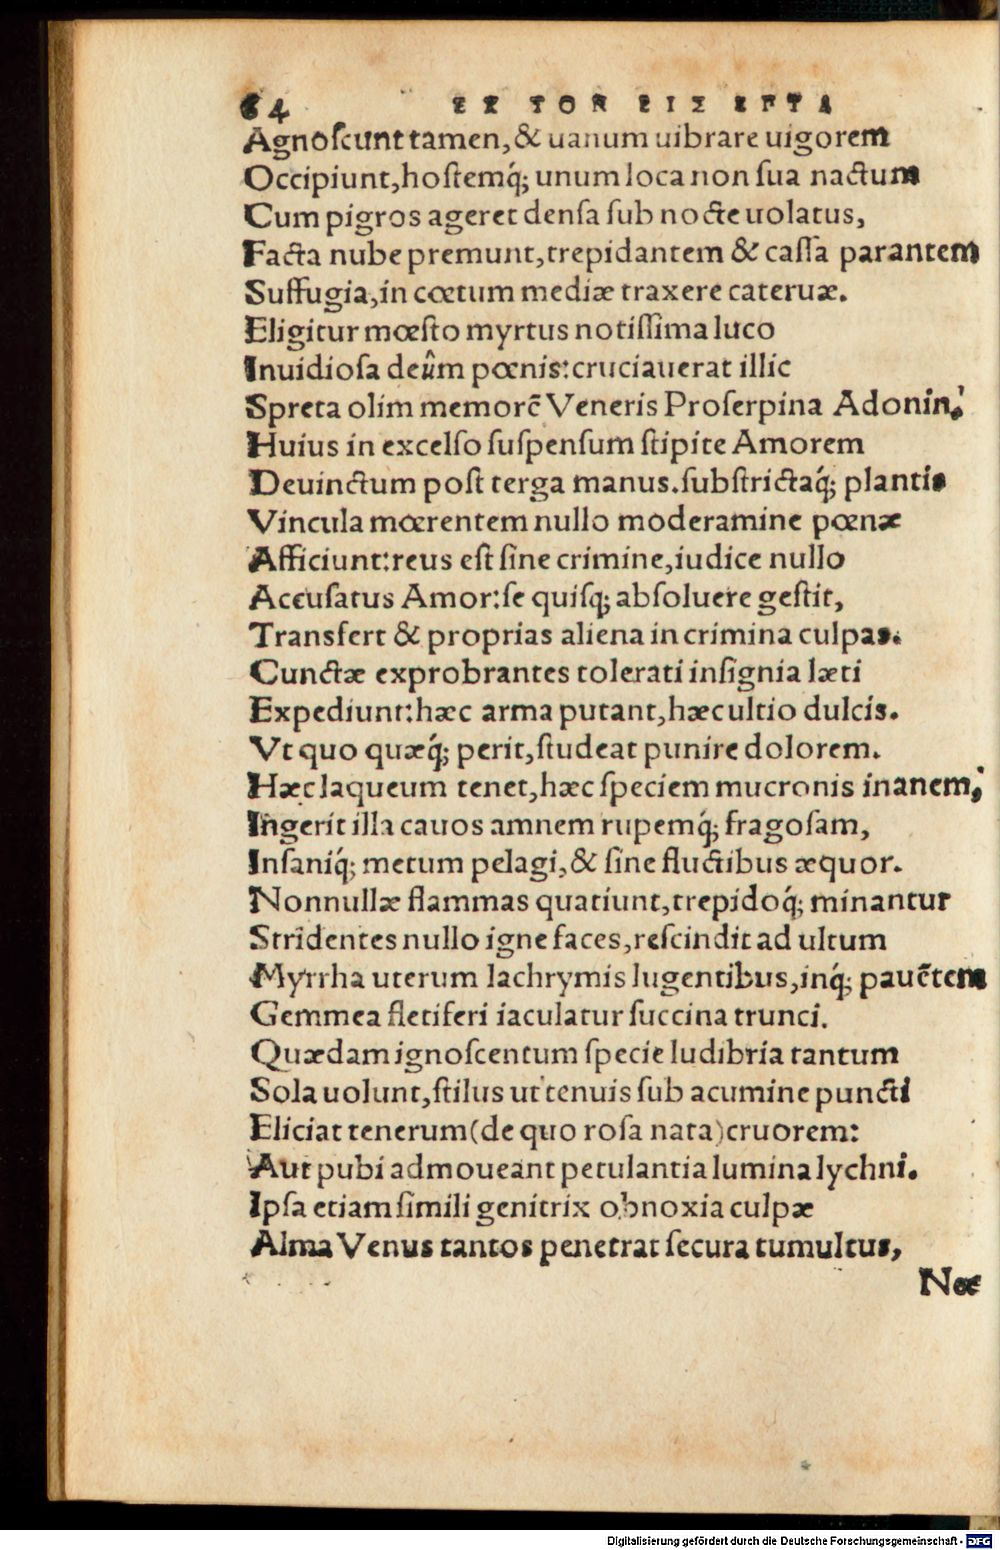 64 ΕΚ ΤΩΝ ΕΙΣ ΕΡΤΑ
Agnoſcunt tamen, & uanum uibrare uigorem
Occipiunt, hoſtemq́; unum loca non ſua nactum
Cum pigros ageret denſa ſub nocte uolatus,
Facta nube premunt, trepidantem & caſſa parantem
Suffugia, in cœtum mediæ traxere cateruæ.
Eligitur mœſto myrtus notiſſima luco
Inuidioſa deûm pœnis: cruciauerat illic
Spreta olim memorē Veneris Proſerpina Adonin.
Huius in excelſo ſuſpenſum ſtipite Amorem
Deuinctum poſt terga manus. ſubſtrictaq́; plantis
Vincula mœrentem nullo moderamine pœnæ
Afficiunt: reus eſt ſine crimine, iudice nullo
Accuſatus Amor: ſe quiſq; abſoluere geſtit,
Transfert & proprias aliena in crimina culpas.
Cunctæ exprobrantes tolerati inſignia læti
Expediunt: hæc arma putant, hæc ultio dulcis.
Vt quo quæq́; perit, ſtudeat punire dolorem.
Hæc laqueum tenet, hæc ſpeciem mucronis inanem,
Ingerit illa cauos amnem rupemq́; fragoſam,
Inſaniq́; metum pelagi, & ſine fluctibus æquor.
Nonnullæ flammas quatiunt, trepidoq́; minantur
Stridentes nullo igne faces, reſcindit ad ultum
Myrrha uterum lachrymis lugentibus, inq́; pauētem
Gemmea fletiferi iaculatur ſuccina trunci.
Quædam ignoſcentum ſpecie ludibria tantum
Sola uolunt, ſtilus ut tenuis ſub acumine puncti
Eliciat tenerum (de quo roſa nata) cruorem:
Aut pubi admoueant petulantia lumina lychni.
Ipſa etiam ſimili genitrix obnoxia culpæ
Alma Venus tantos penetrat ſecura tumultus,
Nec
Digitalisierung gefördert durch die Deutsche Forschungsgemeinschaft - DFG